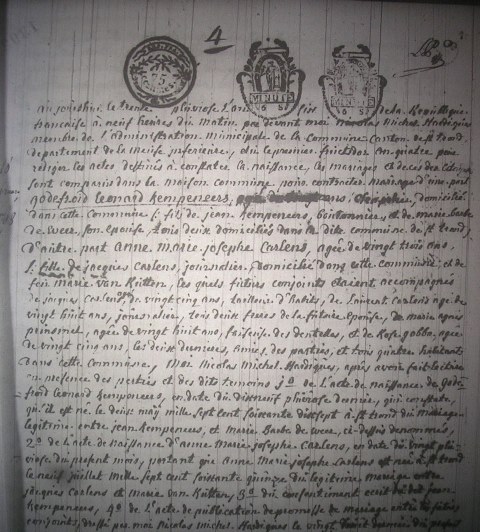 4
aujourdhui le trente pluviose l'an six de la République
française à neuf heures du matin par devant moi Nicolas Michel Hadiques
membre de l'administration municipale de la commune Canton de St trond
departement de la meuse inferieure, élu le premier fructidor an quatre pour
rédiger les actes destinés à constater la naissance, les mariages et deces des citoyens
sont comparus dans la maison commune pour contracter mariage d'une part
godefroid leonard Kempeneers, domicilié
dans cette commune f. fil de jean Kempeneers, boutonnier, et de marie barbe
de Weer, son epouse, tous deux domiciliés dans la dite commune de St trond,
d'autre part anne marie josephe Carlens, agée de vingt trois ans,
f. fille de jacques Carlens, journalier, domicilié dans cette commune, et de
feu marie van Rutten, les quels futurs conjoints étaient accompagnés
de jacques Carlens agé de vingt cinq ans, tailleur d'habits, de Laurent Carlens agé de
vingt huit ans, journalier, tous deux freres de la future epouse, de marie agnes
agée de vingt huit ans, faiseuse des dentelles, et de Rose gobbe, agée
de vingt cinq ans, les deux dernieres, amies des parties, et tous quatre habitants
dans cette commune, Moi Nicolas Michel Hadiques, après avoir fait lecture
en presence des parties et des dits temoins 1.o de l'acte de naissance de Gode-
froid leonard Kempeneers, en date du dixneuf pluviose dernier, qui constate
qu'il est né le deux may mille sept cent soixante dixsept à St trond du mariage
legitime entre jean Kempeneers, et marie barbe de weer, ci-dessus denommés,
2.o de l'acte de naissance d'anne marie josephe Carlens, en date du vingt plu-
viose du present mois, portant que anne marie josephe Carlens est née à St trond
le neuf juillet mille sept cent soixante quinze du legitime mariage entre
jacques Carlens et marie van Rutten, 3.o du consentement ecrit du dit jean
Kempeneers, 4.o de l'acte de publication de promesse de mariage entre les futurs
conjoints, dressé par moi Nicolas Michel Hadiques le vingt pluviose du present mois